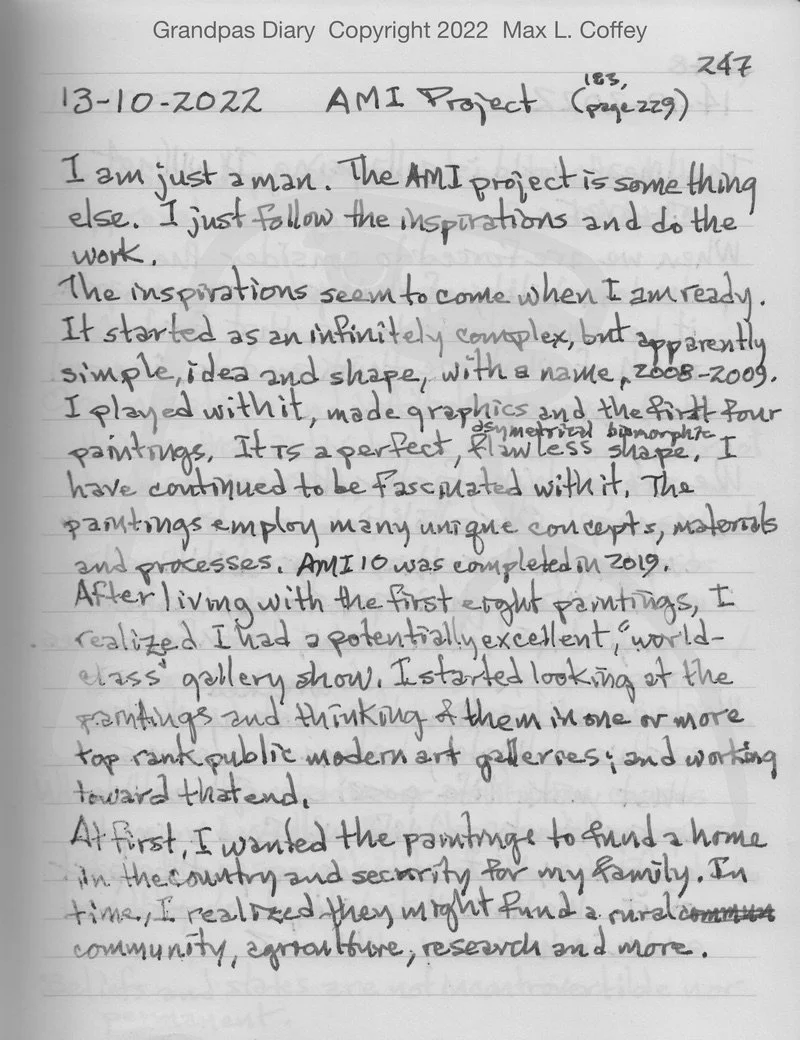 Grandpas Diary Copyright 2022 Max L. Coffey
247
13-10-2022 AMI Project (183, page 229)
I am just a man. The AMI project is something
else. I just follow the inspirations and do the
work.
The inspirations seem to come when I am ready.
It started as an infinitely complex, but apparently
simple, idea and shape, with a name, 2008-2009.
I played with it, made graphics and the first four
asymetrical biomorphic
paintings. It is a perfect, flawless shape. I
have continued to be fascinated with it. The
paintings employ many unique concepts, materials
and processes. AMI 10 was completed in 2019.
After living with the first eight paintings, I
realized I had a potentially excellent, "world-
class" gallery show. I started looking at the
paintings and thinking of them in one or more
top rank public modern art galleries; and working
toward that end.
At first, I wanted the paintings to fund a home
in the country and security for my family. In
time, I realized they might fund a rural
community, agriculture, research and more.